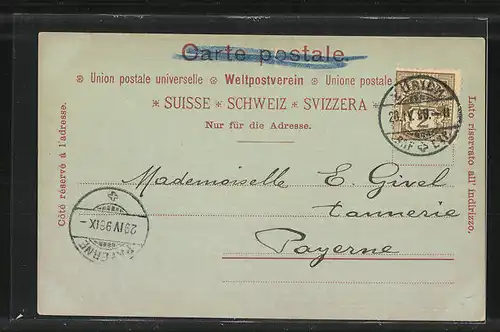 Carte postale.
Union postale universelle Weltpostverein Unione postale
SUISSE SCHWEIZ SVIZZERA
Nur für die Adresse.
Côté réservé à l'adresse.
Lato riservato all' indirizzo.
ZÜRICH
2
Mademoiselle E. Givel
tannerie
Payerne
PAYERNE